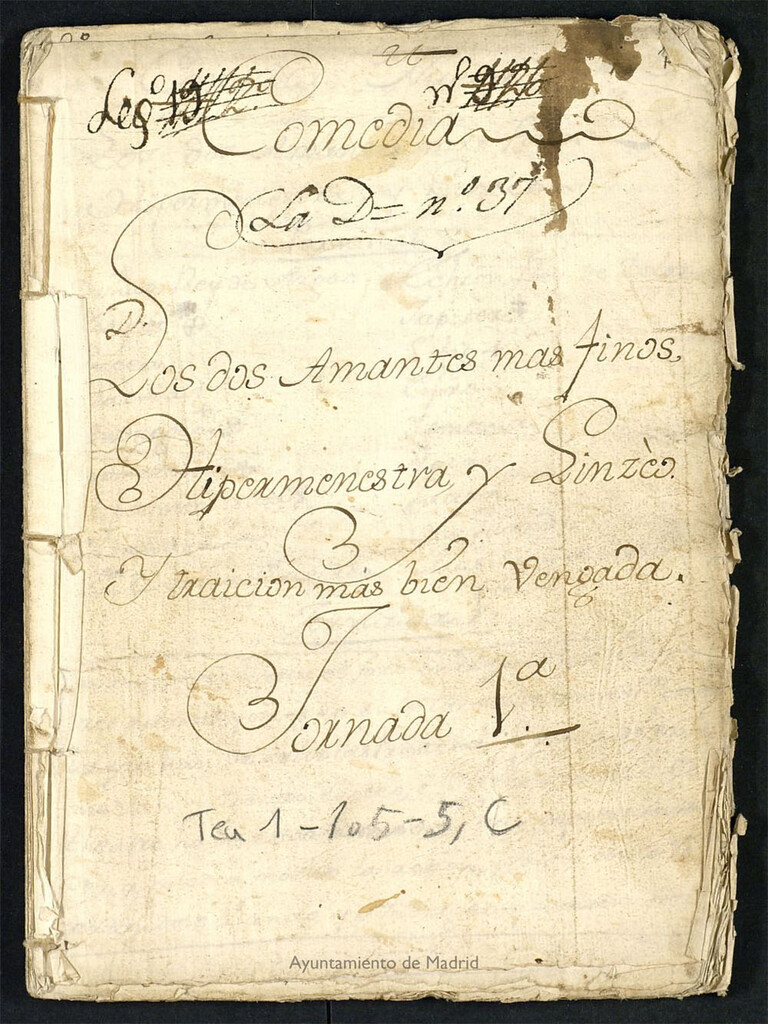 Leg.º 19 n.º
Comedia
La D= n.º 37
D.
Los dos Amantes mas finos,
Hipermenestra, y Linzèo.
Y traicion más bien Vengada.
Jornada 1.ª
Tea 1-105-5, C
Ayuntamiento de Madrid